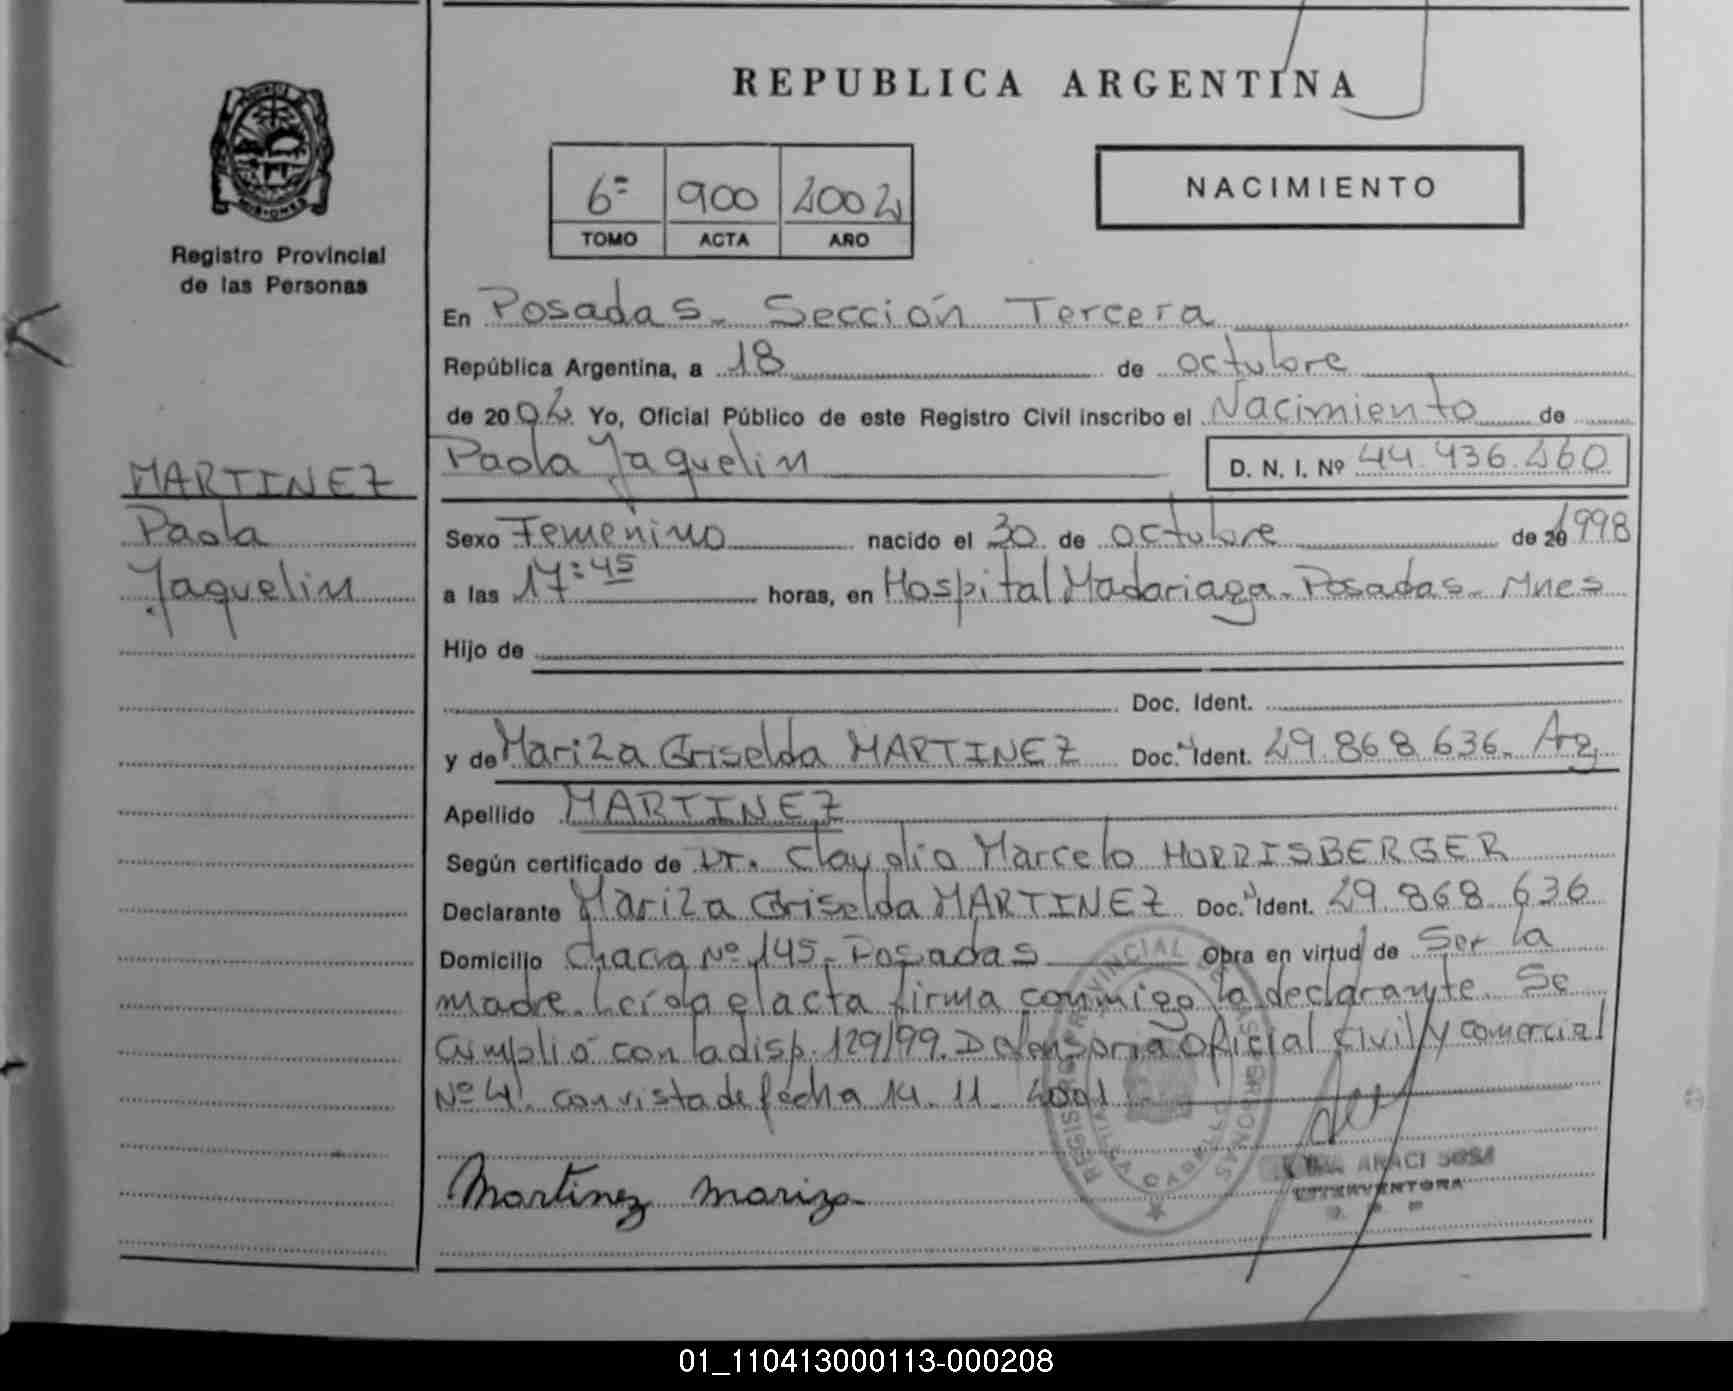 REPUBLICA ARGENTINA
MISIONES
Registro Provincial
de las Personas
6ª 900 2002
TOMO ACTA AÑO
NACIMIENTO
En Posadas - Sección Tercera
República Argentina, a 18 de octubre
de 2002 Yo, Oficial Público de este Registro Civil inscribo el Nacimiento de
Paola Jaquelin D. N. I. Nº 44.436.260
MARTINEZ
Paola
Jaquelin
Sexo Femenino nacido el 30 de octubre de 1998
a las 17:45 horas, en Hospital Madariaga - Posadas - Mnes
Hijo de
Doc. Ident.
y de Mariza Griselda MARTINEZ Doc. Ident. 29.868.636. Arg
Apellido MARTINEZ
Según certificado de Dr. Claudio Marcelo HORRISBERGER
Declarante Mariza Griselda MARTINEZ Doc. Ident. 29.868.636
Domicilio Chacra Nº 145 - Posadas Obra en virtud de Ser la
madre. Leída el acta firma conmigo la declarante. Se
cumplió con la disp. 129/99. Defensoria Oficial Civil y comercial
Nº 4. con vista de fecha 14.11.2001
REGISTRO PROVINCIAL DE LAS PERSONAS
Martinez Mariza
ARACI SOSA
INTERVENTORA
01_110413000113-000208